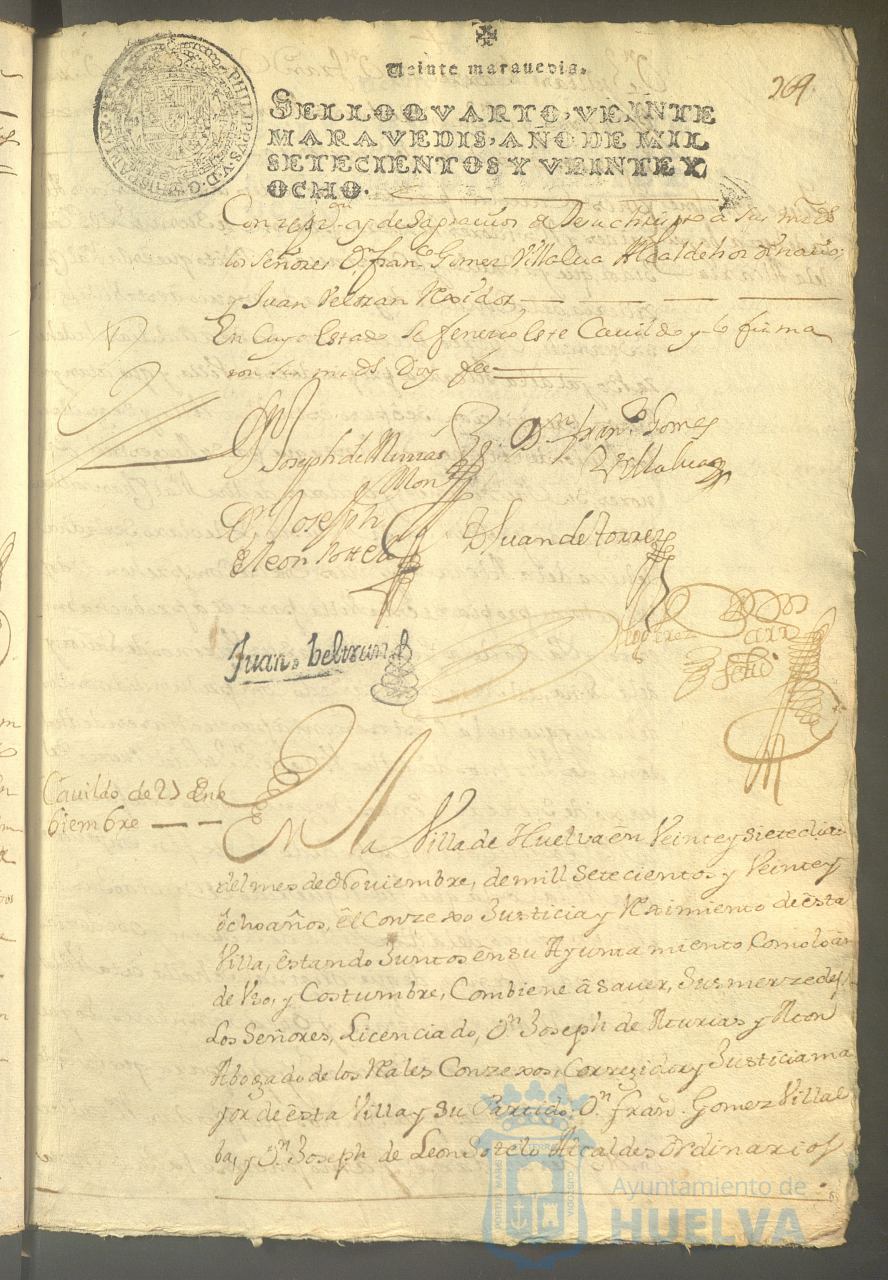 Veinte maravedis.
269.
SELLO QVARTO, VEINTE
MARAVEDIS, AÑO DE MIL
SETECIENTOS Y VEINTE Y
OCHO.
PHILIPPVS V D G
de Agravios a sus mrds
los Señores Dn. franco. Gomez Villalva Alcalde hordinario
y Juan Veltran Rexidor
En Cuyo Estado se fenecio este Cavildo y lo firma
ron sus mrds Doy fee
Joseph de
Dn. franco. Gomez
Villalva
Dn. Joseph
de Leon Sotelo
D Juan de torres
Juan beltran
Cavildo de 27 de no
biembre
En la Villa de Huelva en Veinte y siete dias
del mes de Noviembre, de mill Setecientos y Veinte y
ocho años, el Conzexo Justicia y Reximiento de esta
Villa, estando Juntos en su Ayuntamiento Como lo an
de Vso, y Costumbre, Combiene a saver, Sus merzedes
Los Señores, Licenciado, Dn. Joseph de y
Abogado de los Rales Conzexos, Correxidor y Justicia ma
yor de esta Villa y su Partido, Dn. fran. Gomez Villal
ba, y Dn. Joseph de Leon Sotelo Alcaldes Ordinarios
Ayuntamiento de
HUELVA